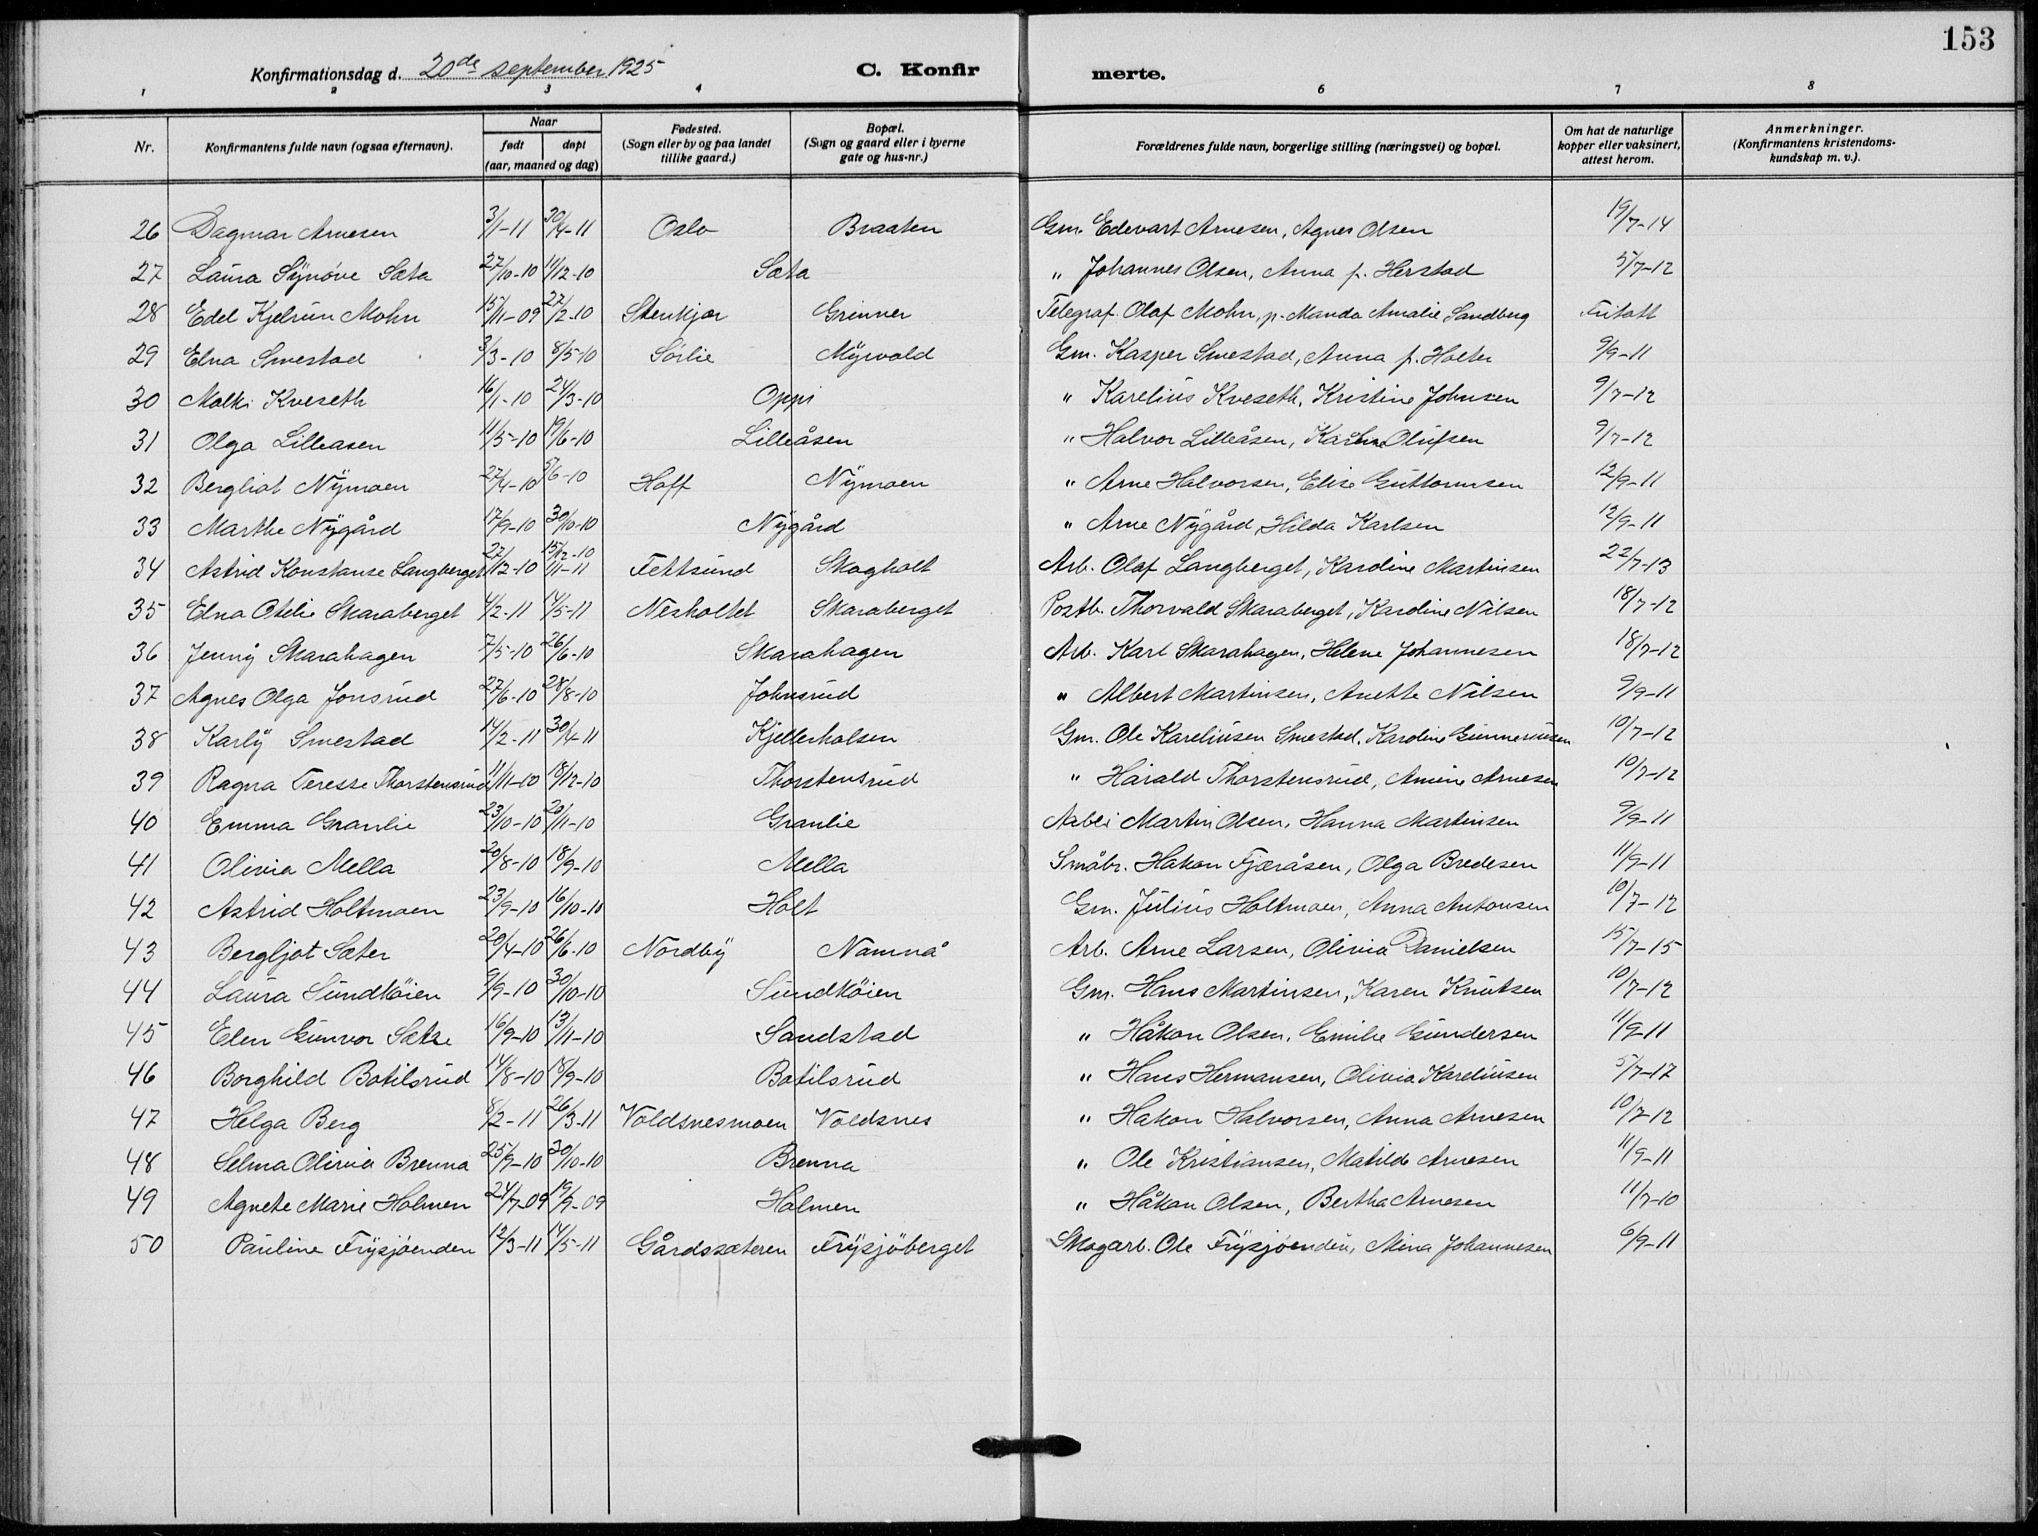 153
Konfirmationsdag d. 20de september 1925 C. Konfir merte.
1 2 3 4 6 7 8
Nr. Konfirmantens fulde navn (ogsaa efternavn). Naar født døpt (aar, maaned og dag) Fødested. (Sogn eller by og paa landet tillike gaard.) Bopæl. (Sogn og gaard eller i byerne gate og hus-nr.) Forældrenes fulde navn, borgerlige stilling (næringsvei) og bopæl. Om hat de naturlige kopper eller vaksinert, attest herom. Anmerkninger. (Konfirmantens kristendoms-kundskap m. v.).
26 Dagmar Arnesen 3/1-11 30/4-11 Oslo Braaten Gm. Edevart Arnesen, Agnes Olsen 19/7-14
27 Laura Synøve Sæta 27/10-10 11/12-10 Sæta " Johannes Olsen, Anna f. Herstad 5/7-12
28 Edel Kjelrun Mohn 15/11-09 27/2-10 Stenkjær Grinner Telegraf. Olaf Mohn, p. Manda Amalie Sandberg Fritatt
29 Elna Smestad 3/3-10 8/5-10 Sørlie Myrvold Gm. Kasper Smestad, Anna f. Holter 9/9-11
30 Molki Kveseth 16/1-10 24/3-10 Oppi " Karelius Kveseth, Kristine Johnsen 9/7-12
31 Olga Lilleasen 11/5-10 19/6-10 Lilleåsen " Halvor Lilleåsen, Karline Olufsen 9/7-12
32 Bergliot Nymoen 27/4-10 5/6-10 Hoff Nymoen " Arne Halvorsen, Elise Guttormsen 12/9-11
33 Marthe Nygård 17/9-10 30/10-10 Nygård " Arne Nygård, Hilda Karlsen 12/9-11
34 Astrid Konstanse Langberget 27/12-10 15/12-10 1/11-11 Fettsund Skogholt Arb. Olaf Langberget, Karoline Martinsen 22/7-13
35 Elna Otelie Skaraberget 4/2-11 4/5-11 Nesholtet Skaraberget Postb. Thorvald Skaraberget, Karoline Nilsen 18/7-12
36 Jenny Skarahagen 7/5-10 26/6-10 Skarahagen Arb. Karl Skarahagen, Helene Johannesen 18/7-12
37 Agnes Olga Jonsrud 27/6-10 28/8-10 Johnsrud " Albert Martinsen, Anette Nilsen 9/9-11
38 Karly Smestad 14/2-11 30/4-11 Kjellerholsen Gm. Ole Kareliusen Smestad, Karoline Gunneriusen 10/7-12
39 Ragna Teresse Thorstensrud 11/11-10 18/12-10 Thorstensrud " Harald Thorstensrud, Amine Arnesen 10/7-12
40 Emma Granlie 23/10-10 20/11-10 Granlie Aabei Martin Olsen, Hanna Martinsen 9/9-11
41 Olivia Mella 20/8-10 18/9-10 Mella Småbr. Hakon Fjæråsen, Olga Bredesen 11/9-11
42 Astrid Holtmoen 23/9-10 16/10-10 Holt Gm. Julius Holtmoen, Anna Antonsen 10/7-12
43 Bergljot Sæter 20/4-10 26/6-10 Nordby Namnå Arb. Arne Larsen, Olivia Danielsen 15/7-15
44 Laura Sundköien 9/9-10 30/10-10 Sundköien Gm. Hans Martinsen, Karen Knutsen 10/7-12
45 Elen Gunvor Sætre 16/9-10 13/11-10 Sandstad " Håkon Olsen, Emilie Gundersen 11/9-11
46 Borghild Botilsrud 14/8-10 18/9-10 Botilsrud " Hans Hermansen, Olivia Kareliusen 5/7-17
47 Helga Berg 8/2-11 26/3-11 Voldsnesmoen Voldsnes " Hakon Halvorsen, Anna Arnesen 10/7-12
48 Selma Olivia Brenna 25/9-10 30/10-10 Brenna " Ole Kristiansen, Matilde Arnesen 11/9-11
49 Agnete Marie Holmen 24/7-09 19/9-09 Holmen " Håkon Olsen, Bertha Arnesen 11/7-10
50 Pauline Frysjøenden 12/3-11 14/5-11 Gårdssæteren Frysjöberget Skogarb. Ole Frysjøenden, Mina Johannesen 6/9-11